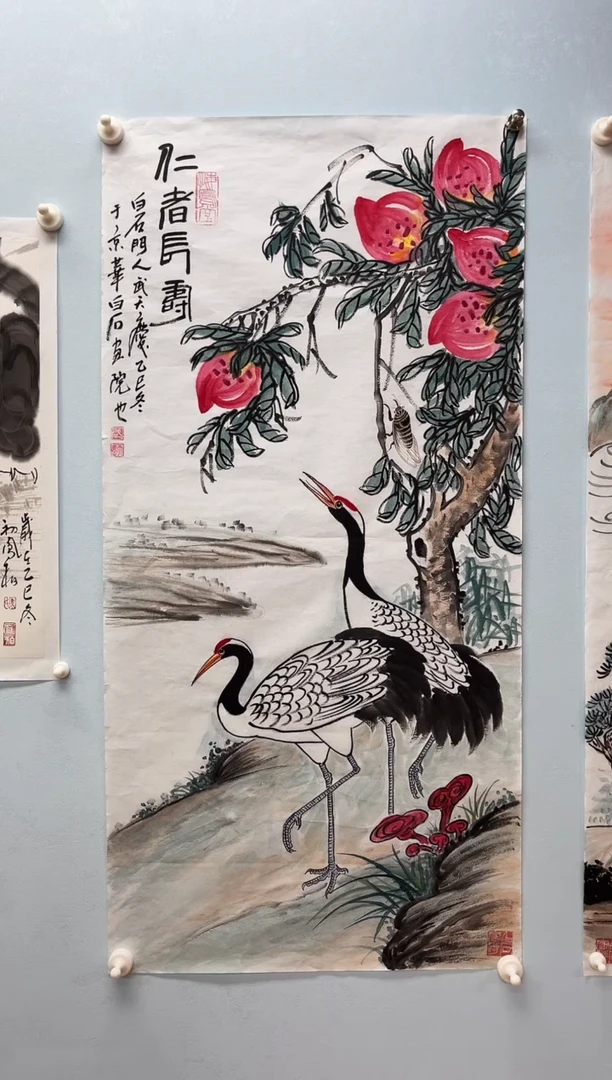 仁者長壽
白石門人武天慶乙巳冬
于京華白石畫院也
歲在乙巳冬